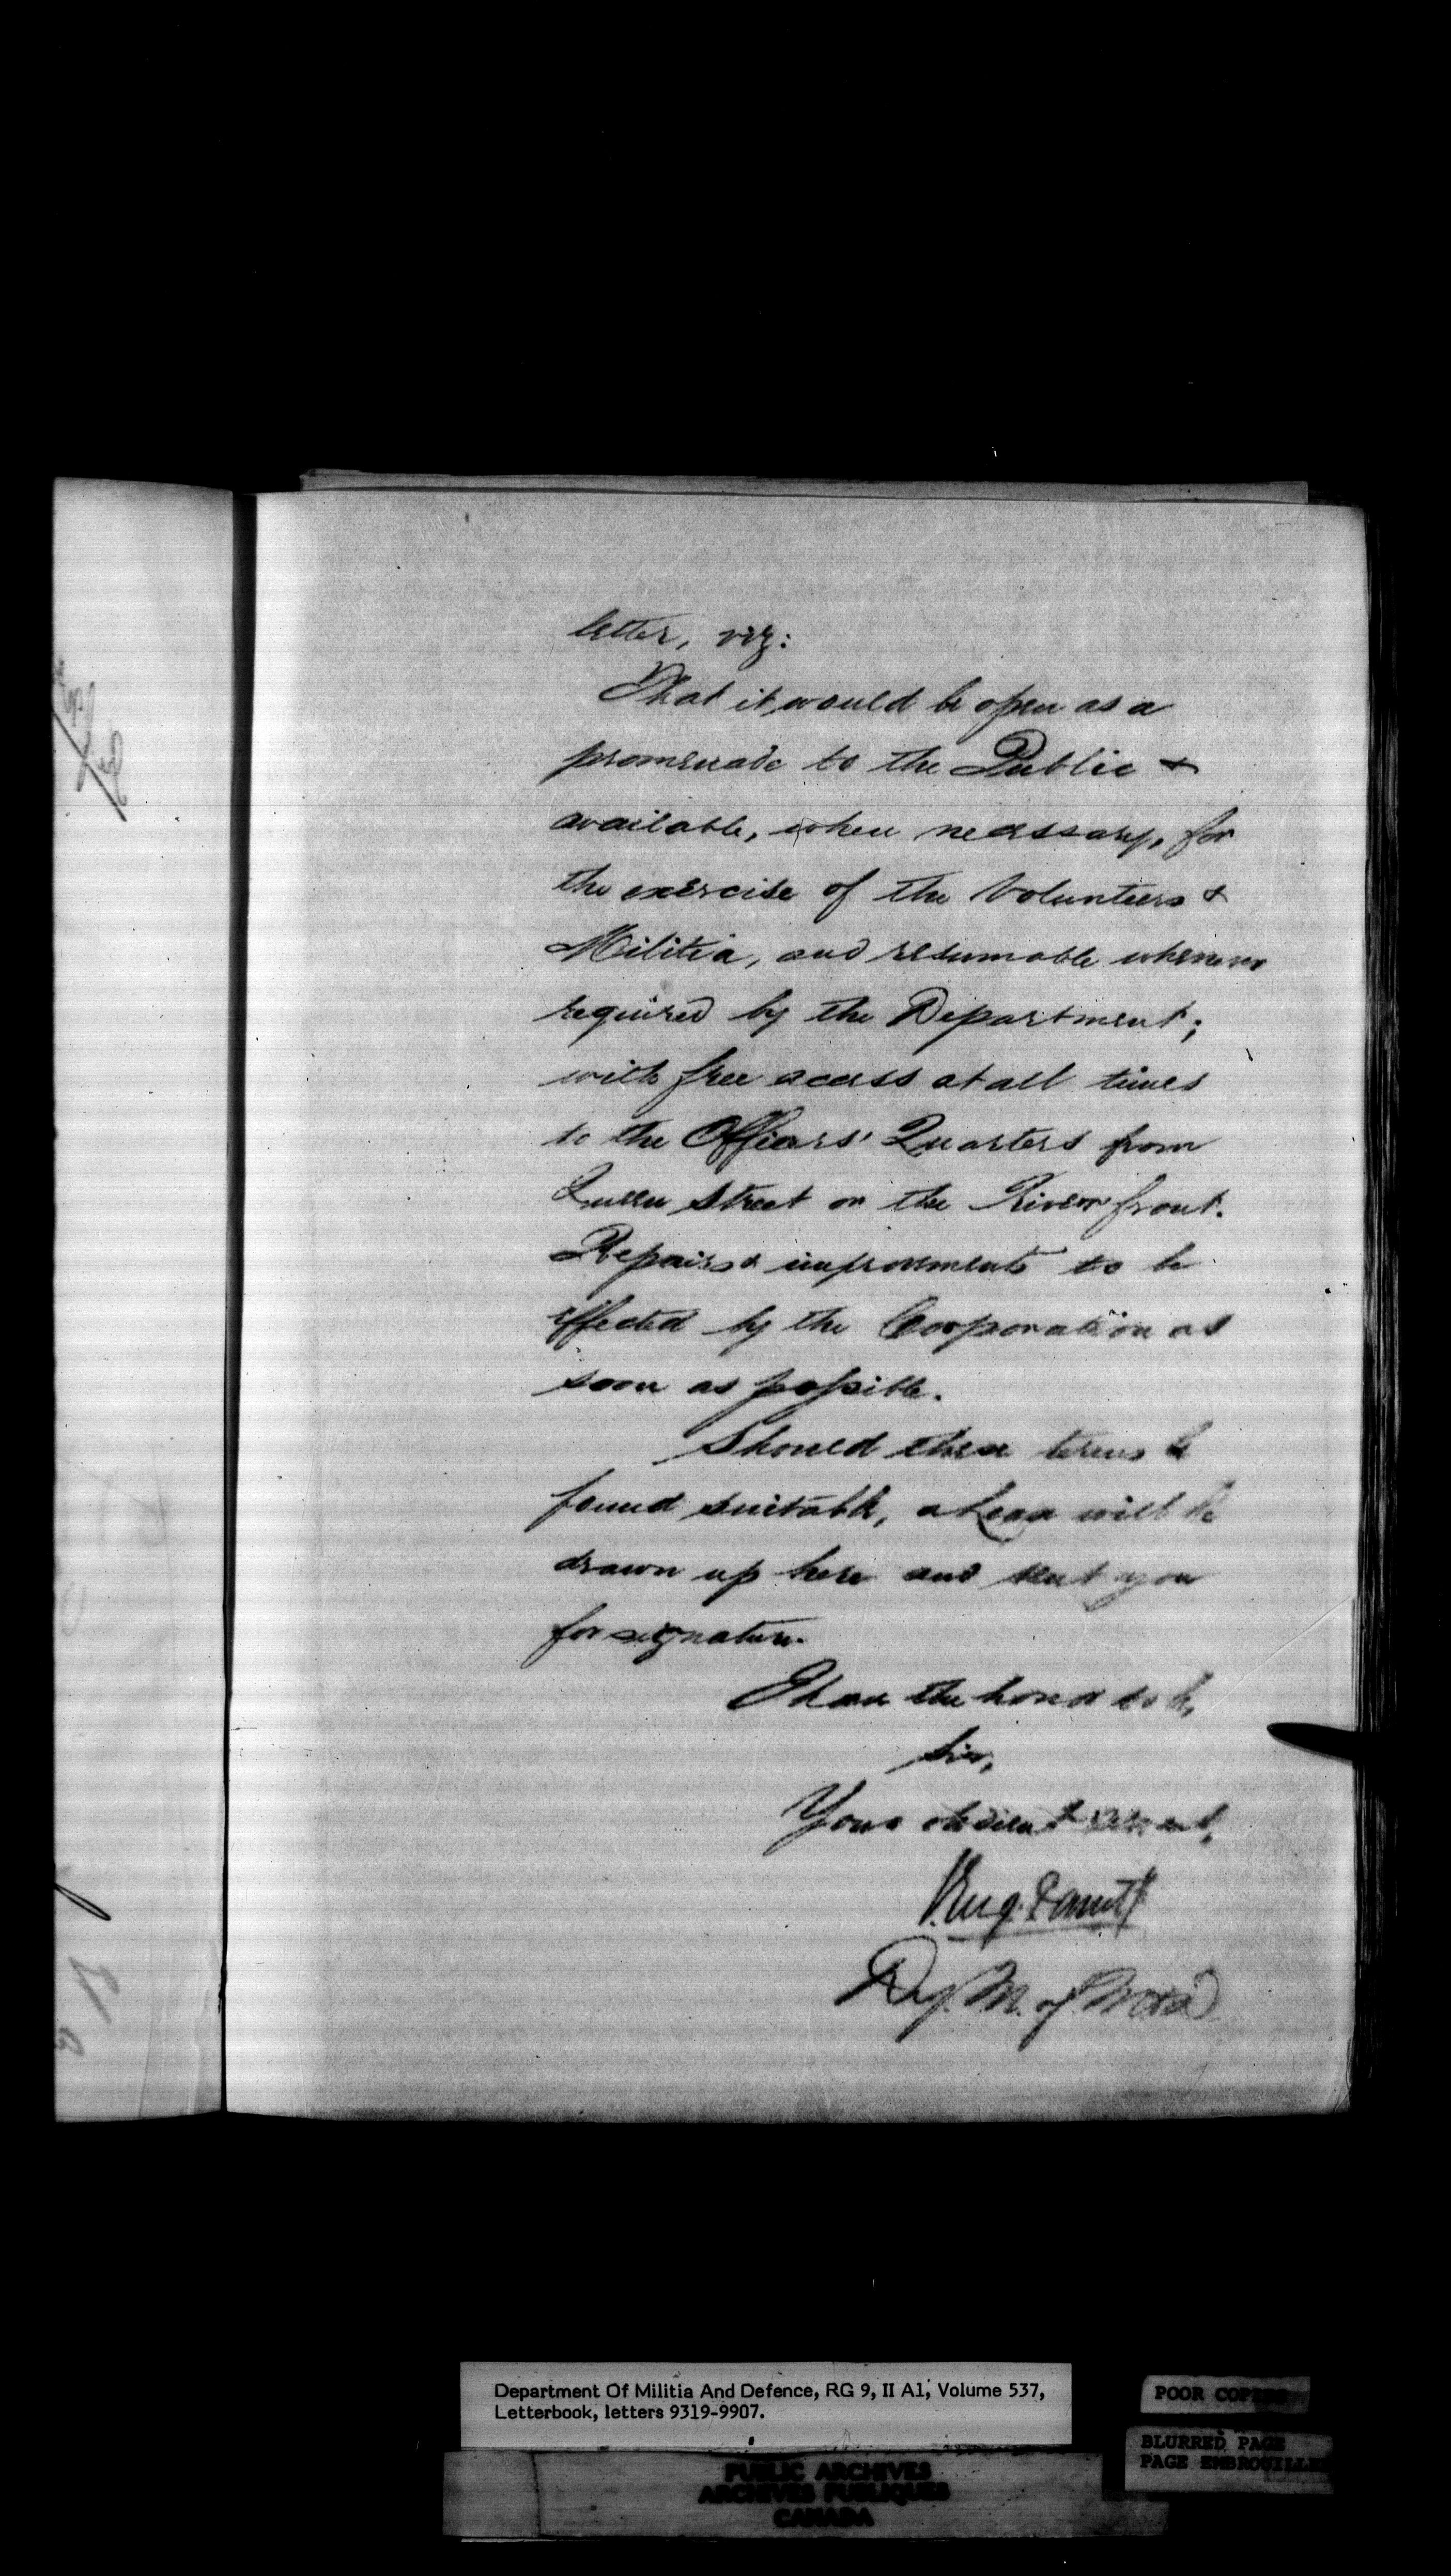 letter, viz:
That it would be open as a
promenade to the Public &
available, when necessary, for
the exercise of the Volunteers &
Militia, and resumable whenever
required by the Department;
with free access at all times
to the Officers' Quarters from
Queen Street or the River front.
Repairs & improvements to be
effected by the Corporation as
soon as possible.
Should these terms be
found suitable, a Lease will be
drawn up here and sent you
for signature.
I have the honor to be,
Sir,
Your obedient servant,
Eug. Panet
Dep. M. of M & D
Department Of Militia And Defence, RG 9, II A1, Volume 537,
Letterbook, letters 9319-9907.
POOR COPIES
BLURRED PAGE
PAGE EMBROUILLEE
PUBLIC ARCHIVES
ARCHIVES PUBLIQUES
CANADA